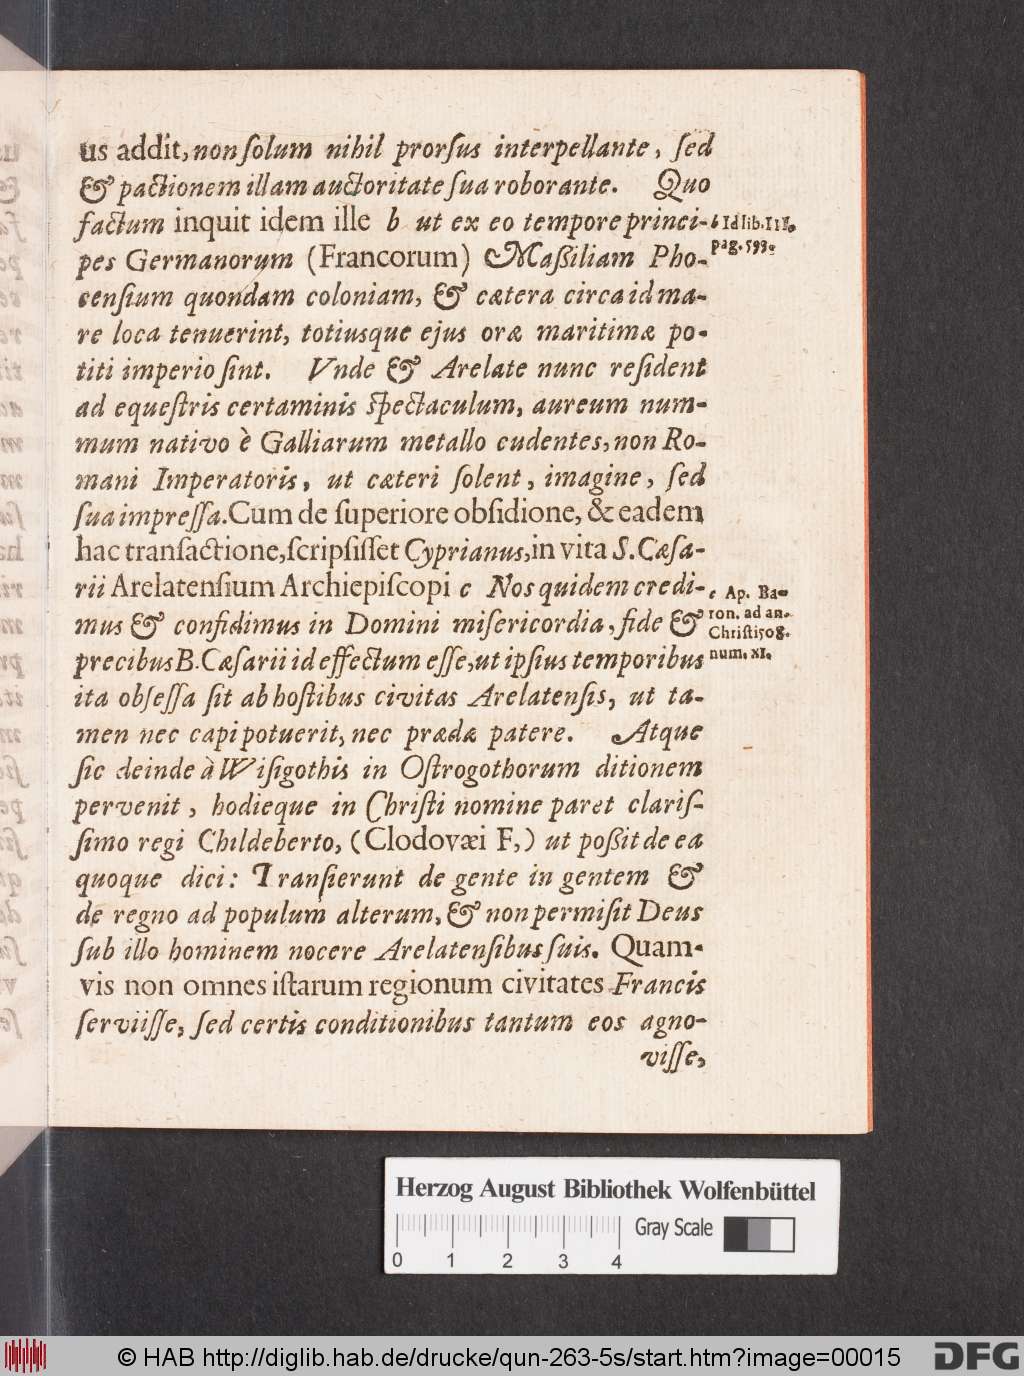 us addit, non ſolum nihil prorſus interpellante, ſed
& pactionem illam auctoritate ſua roborante. Quo
factum inquit idem ille b ut ex eo tempore princi-
pes Germanorum (Francorum) Maßiliam Pho-
cenſium quondam coloniam, & cætera circa id ma-
re loca tenuerint, totiusque ejus oræ maritimæ po-
titi imperio ſint. Vnde & Arelate nunc reſident
ad equeſtris certaminis ſpectaculum, aureum num-
mum nativo è Galliarum metallo cudentes, non Ro-
mani Imperatoris, ut cæteri ſolent, imagine, ſed
ſua impreſſa. Cum de ſuperiore obſidione, & eadem
hac tranſactione, ſcripſiſſet Cyprianus, in vita S. Cæſa-
rii Arelatenſium Archiepiſcopi c Nos quidem credi-
mus & confidimus in Domini miſericordia, fide &
precibus B. Cæſarii id effectum eſſe, ut ipſius temporibus
ita obſeſſa ſit ab hoſtibus civitas Arelatenſis, ut ta-
men nec capi potuerit, nec prædæ patere. Atque
ſic deinde à Wiſigothis in Oſtrogothorum ditionem
pervenit, hodieque in Chriſti nomine paret clariſ-
ſimo regi Childeberto, (Clodovæi F,) ut poßit de ea
quoque dici: Tranſierunt de gente in gentem &
de regno ad populum alterum, & non permiſit Deus
ſub illo hominem nocere Arelatenſibus ſuis. Quam-
vis non omnes iſtarum regionum civitates Francis
ſerviiſſe, ſed certis conditionibus tantum eos agno-
viſſe,
b Id lib. III.
pag. 593.
c Ap. Ba-
ron. ad an.
Chriſti 508.
num. XI.
Herzog August Bibliothek Wolfenbüttel
Gray Scale
0 1 2 3 4
© HAB http://diglib.hab.de/drucke/qun-263-5s/start.htm?image=00015
DFG